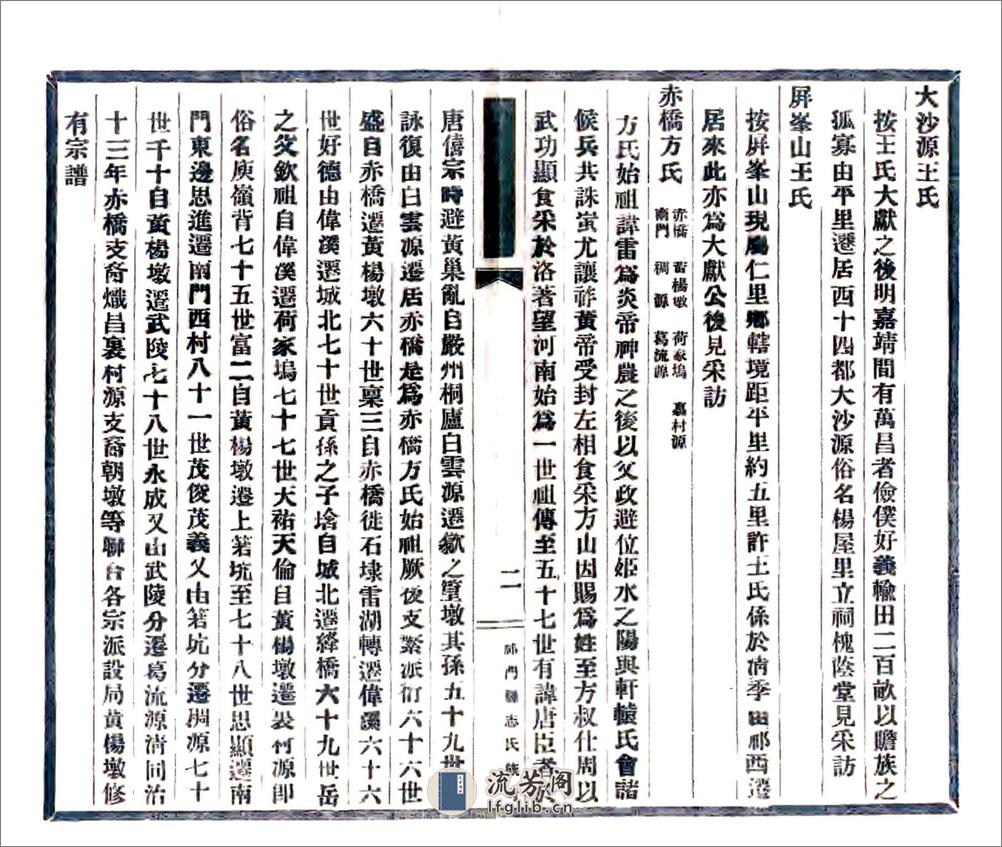 大沙源王氏
按王氏大獻之後明嘉靖間有萬昌者儉僕好義輸田二百畝以贍族之
孤寡由平里遷居西十四都大沙源俗名楊屋里立祠槐蔭堂見采訪
屏峯山王氏
按屏峯山現屬仁里鄉轄境距平里約五里許王氏係於清季由祁西遷
居來此亦爲大獻公後見采訪
赤橋方氏 赤橋 黃楊墩 荷家塢 嘉村源
南門 稠源 葛流源
方氏始祖諱雷爲炎帝神農之後以父政避位姬水之陽與軒轅氏會諸
候兵共誅蚩尤讓祚黃帝受封左相食采方山因賜爲姓至方叔仕周以
武功顯食采於洛著望河南始爲一世祖傳至五十七世有諱唐臣者於
二
祁門縣志氏族
唐僖宗時避黃巢亂自嚴州桐廬白雲源遷歙之篁墩其孫五十九世
詠復由白雲源遷居赤橋是爲赤橋方氏始祖厥後支繁派衍六十六世
盛自赤橋遷黃楊墩六十世稟三自赤橋徙石埭雷湖轉遷偉溪六十六
世好德由偉溪遷城北七十世貢孫之子培自城北遷繹橋六十九世岳
之父欽祖自偉溪遷荷家塢七十七世天祐天倫自黃楊墩遷裊村源即
俗名庾嶺背七十五世富二自黃楊墩遷上箬坑至七十八世思顯遷南
門東邊思進遷南門西村八十一世茂俊茂義又由箬坑分遷稠源七十
世千十自黃楊墩遷武陵七十八世永成又由武陵分遷葛流源清同治
十三年赤橋支裔熾昌裊村源支裔朝墩等聯合各宗派設局黃楊墩修
有宗譜
流芳阁
lfglib.cn